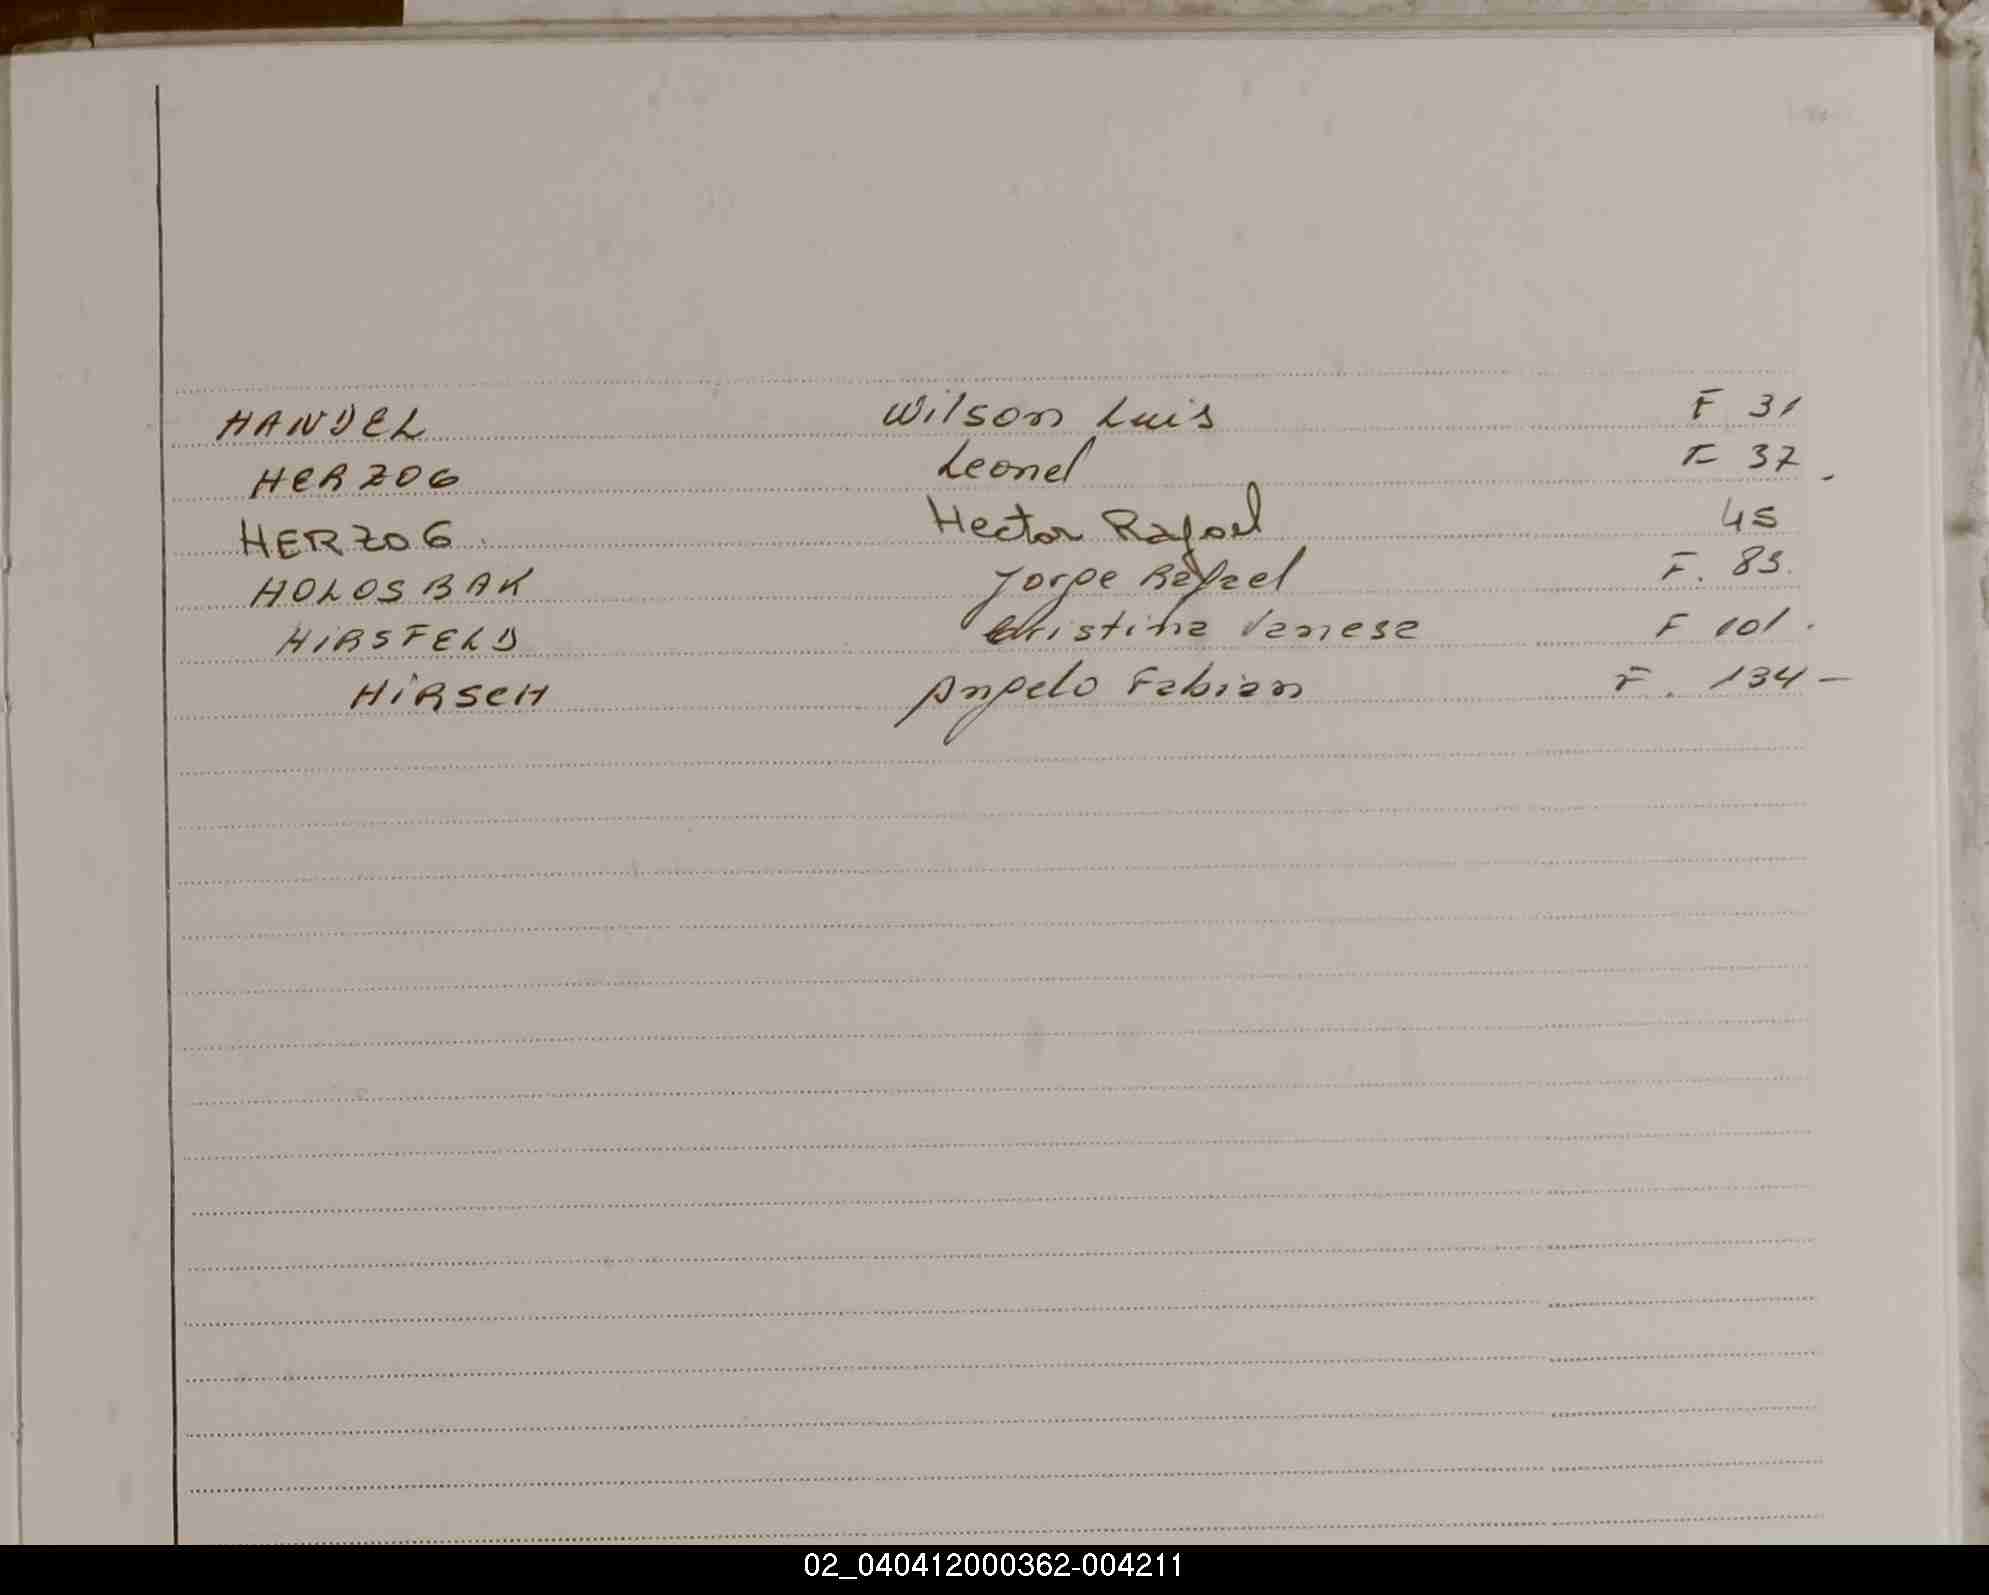 HANDEL Wilson Luis F 31
HERZOG Leonel F 37.
HERZOG. Hector Rafael 45
HOLOSBAK Jorge Rafael F. 83.
HIRSFELD Cristina Vanesa F 101.
HIRSCH Angelo Fabian F. 134-
02_040412000362-004211